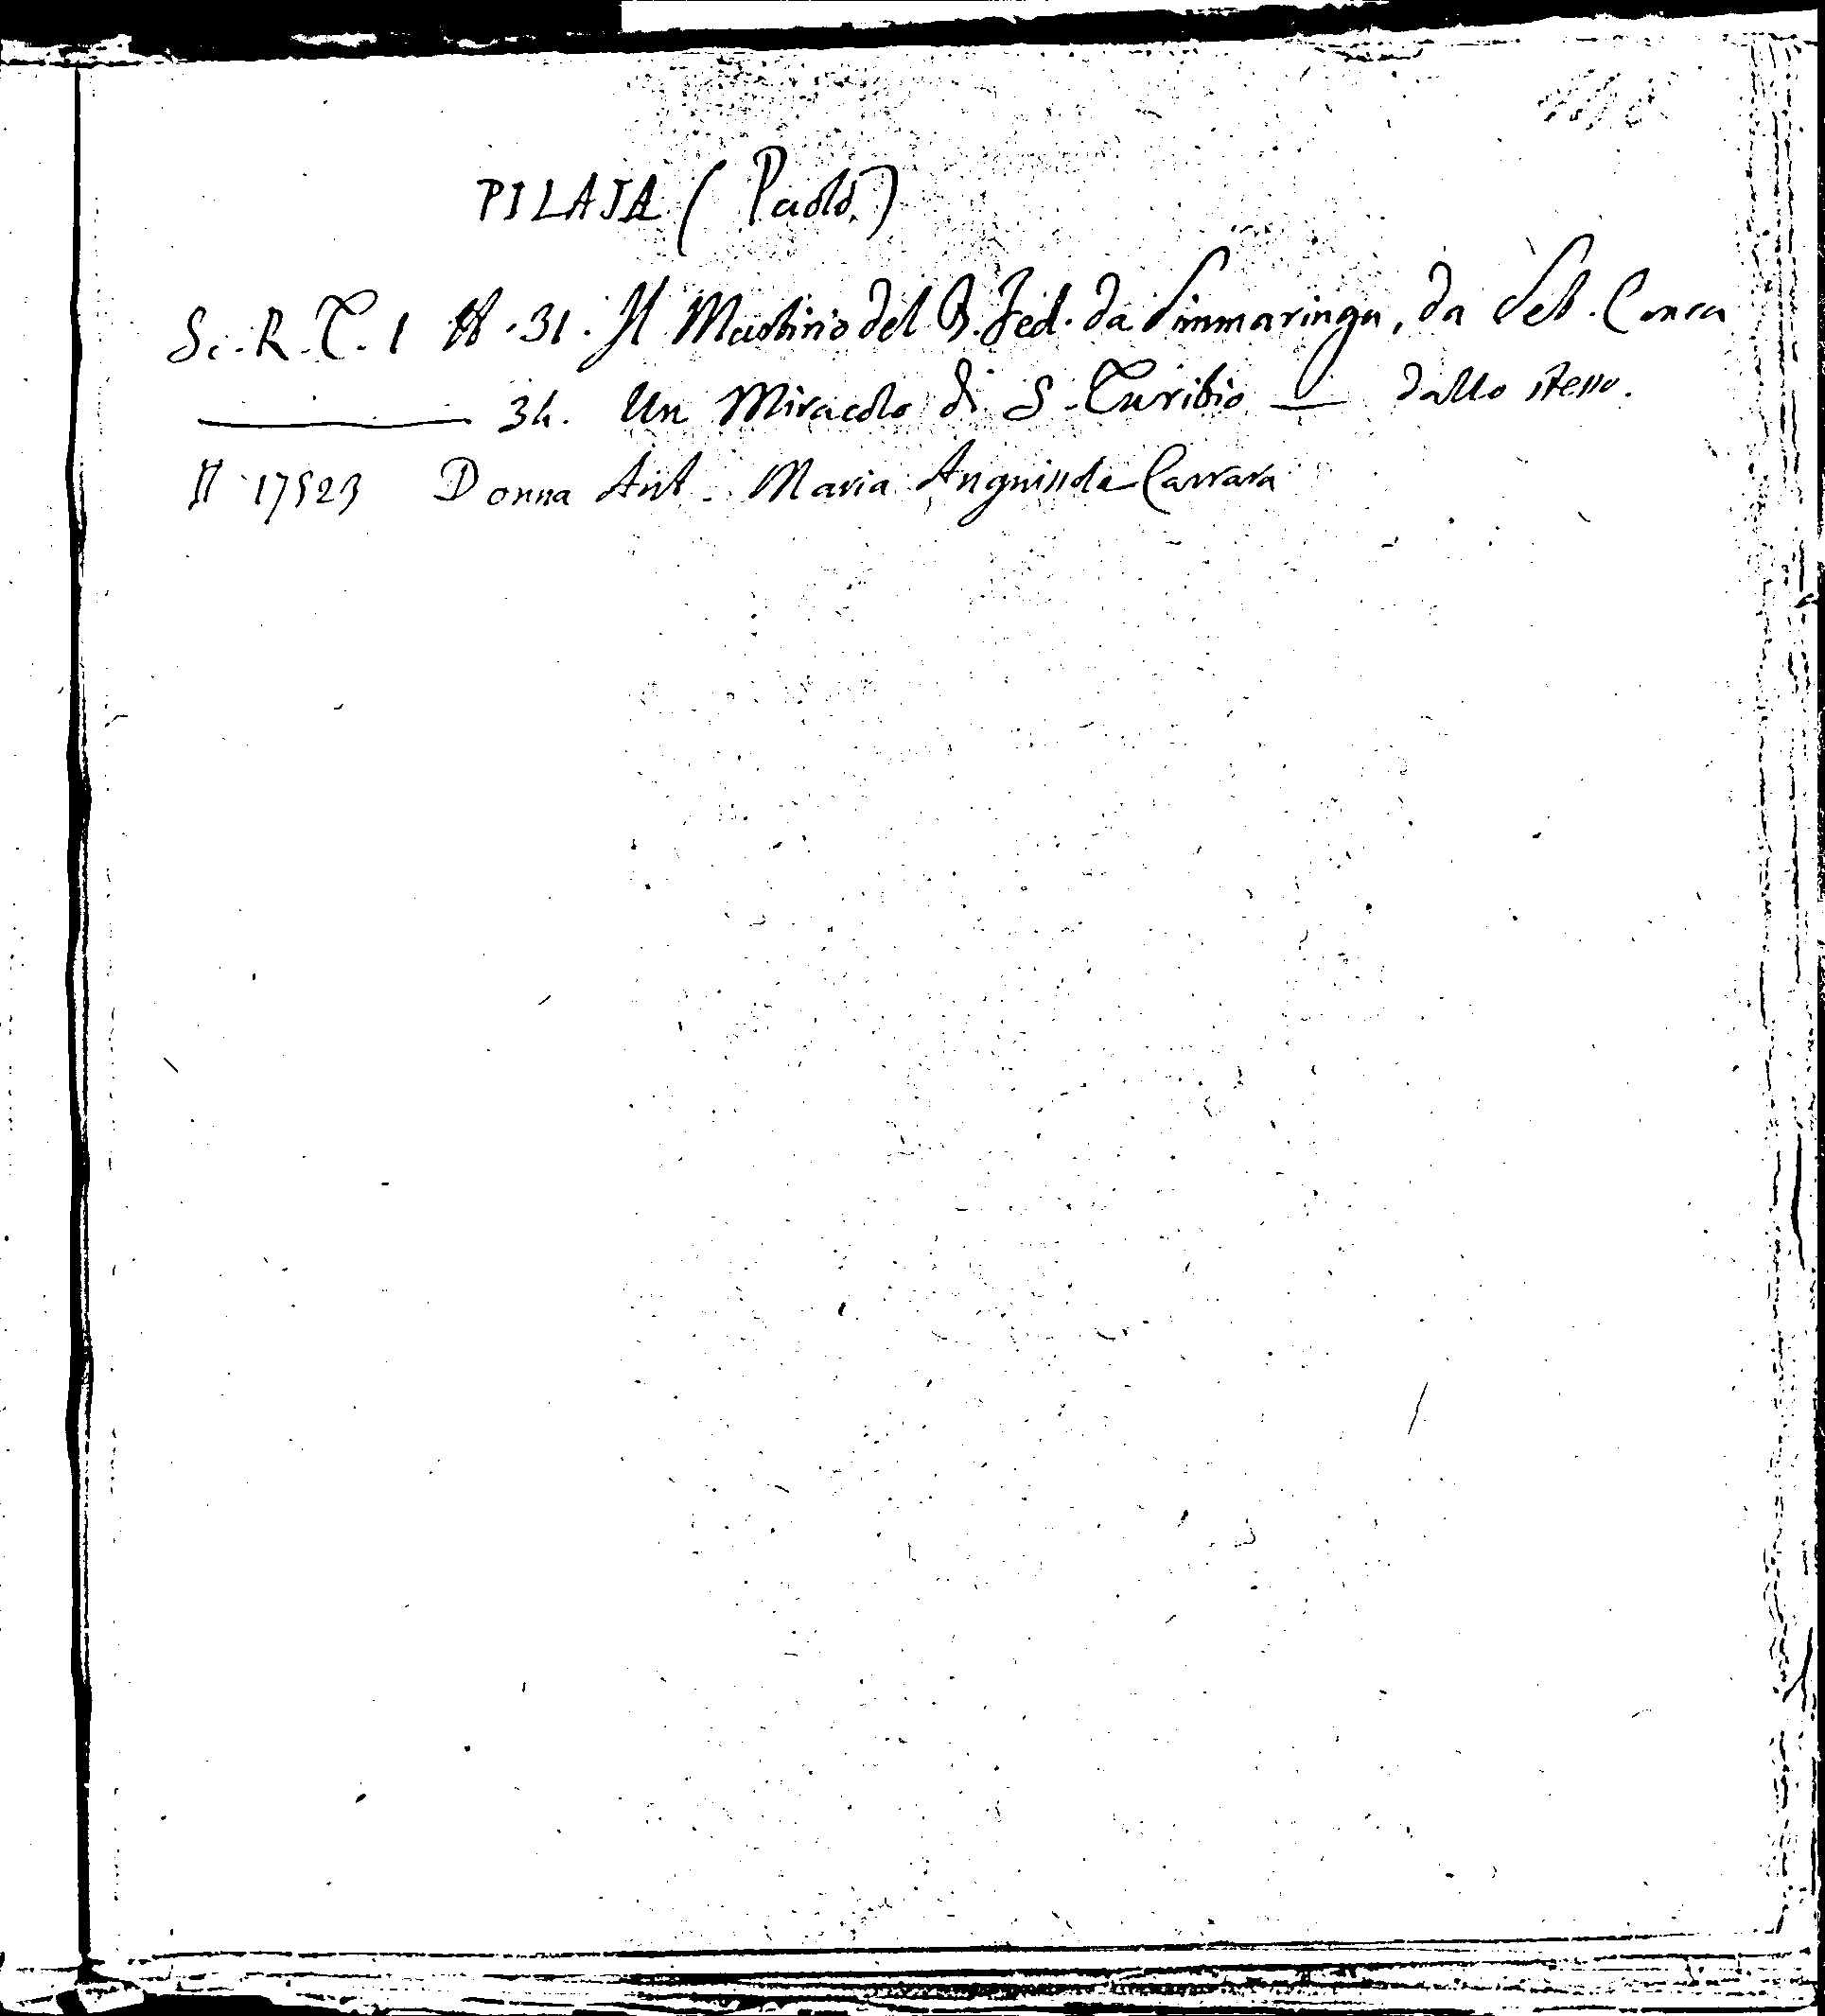 PILAJA (Paolo.)
Sc. R. T. 1 N. 31. Il Martirio del B. Fed. da Simmaringa, da Seb. Conca
34. Un Miracolo di S. Turibio — dallo stesso.
N 17523 Donna Ant. Maria Anguissola Carrara